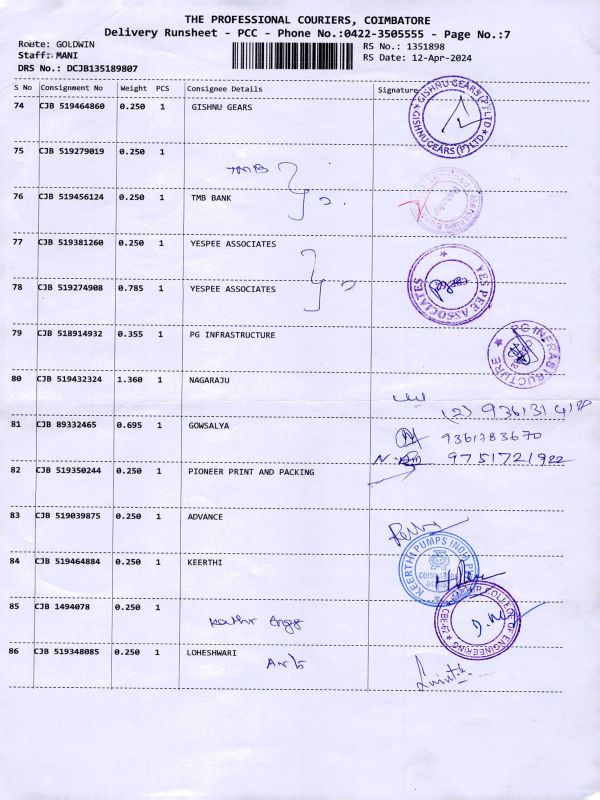 THE PROFESSIONAL COURIERS, COIMBATORE
Delivery Runsheet - PCC - Phone No.:0422-3505555 - Page No.:7
Route: GOLDWIN
Staff: MANI
DRS No.: DCJB135189807
RS No.: 1351898
RS Date: 12-Apr-2024
S No Consignment No Weight PCS Consignee Details Signature
74 CJB 519464860 0.250 1 GISHNU GEARS
GISHNU GEARS (P) LTD
GISHNU GEARS (P) LTD
75 CJB 519279019 0.250 1
TMB
76 CJB 519456124 0.250 1 TMB BANK
2.
77 CJB 519381260 0.250 1 YESPEE ASSOCIATES
78 CJB 519274908 0.785 1 YESPEE ASSOCIATES
2
YES PEE ASSOCIATES
79 CJB 518914932 0.355 1 PG INFRASTRUCTURE
PG INFRASTRUCTURE
80 CJB 519432324 1.360 1 NAGARAJU
81 CJB 89332465 0.695 1 GOWSALYA
9361783670
9751721922
82 CJB 519350244 0.250 1 PIONEER PRINT AND PACKING
83 CJB 519039875 0.250 1 ADVANCE
84 CJB 519464884 0.250 1 KEERTHI
KEERTHI PUMPS INDIA
85 CJB 1494078 0.250 1
Kathir Engg
COLLEGE OF ENGINEERING
86 CJB 519348085 0.250 1 LOHESHWARI